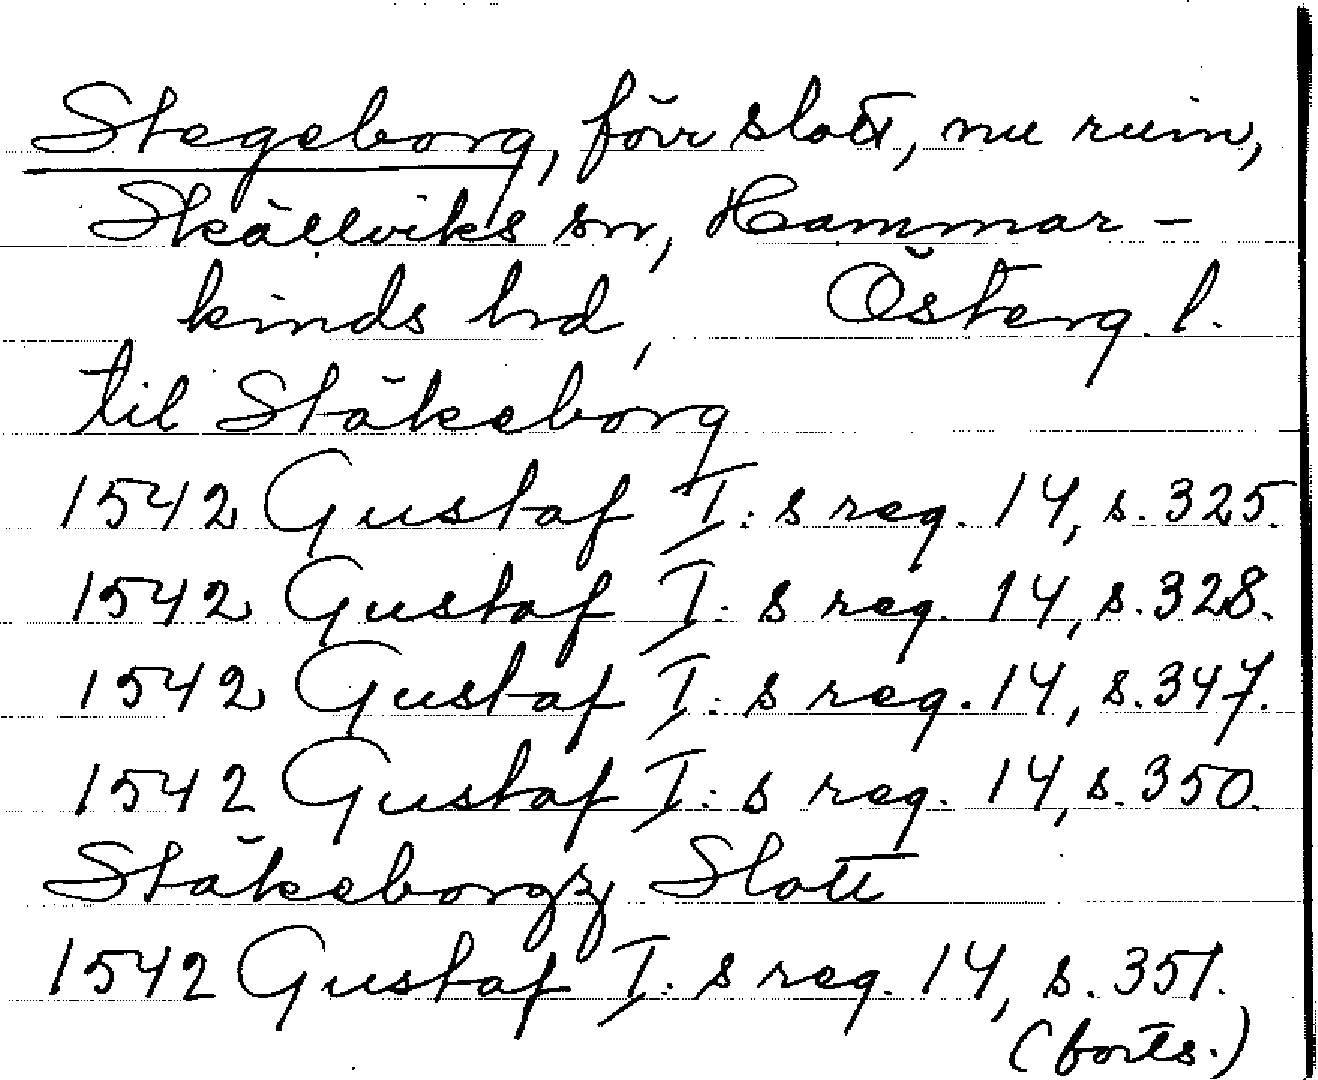 Stegeborg, förr slott, nu ruin,
Skällviks sn, Hammar-
kinds hd, Österg. l.
til Stäkeborg
1542 Gustaf I:s reg. 14, s. 325.
1542 Gustaf I:s reg. 14, s. 328.
1542 Gustaf I:s reg. 14, s. 347.
1542 Gustaf I:s reg. 14, s. 350.
Stäkeborgz Slott
1542 Gustaf I:s reg. 14, s. 351.
(forts.)